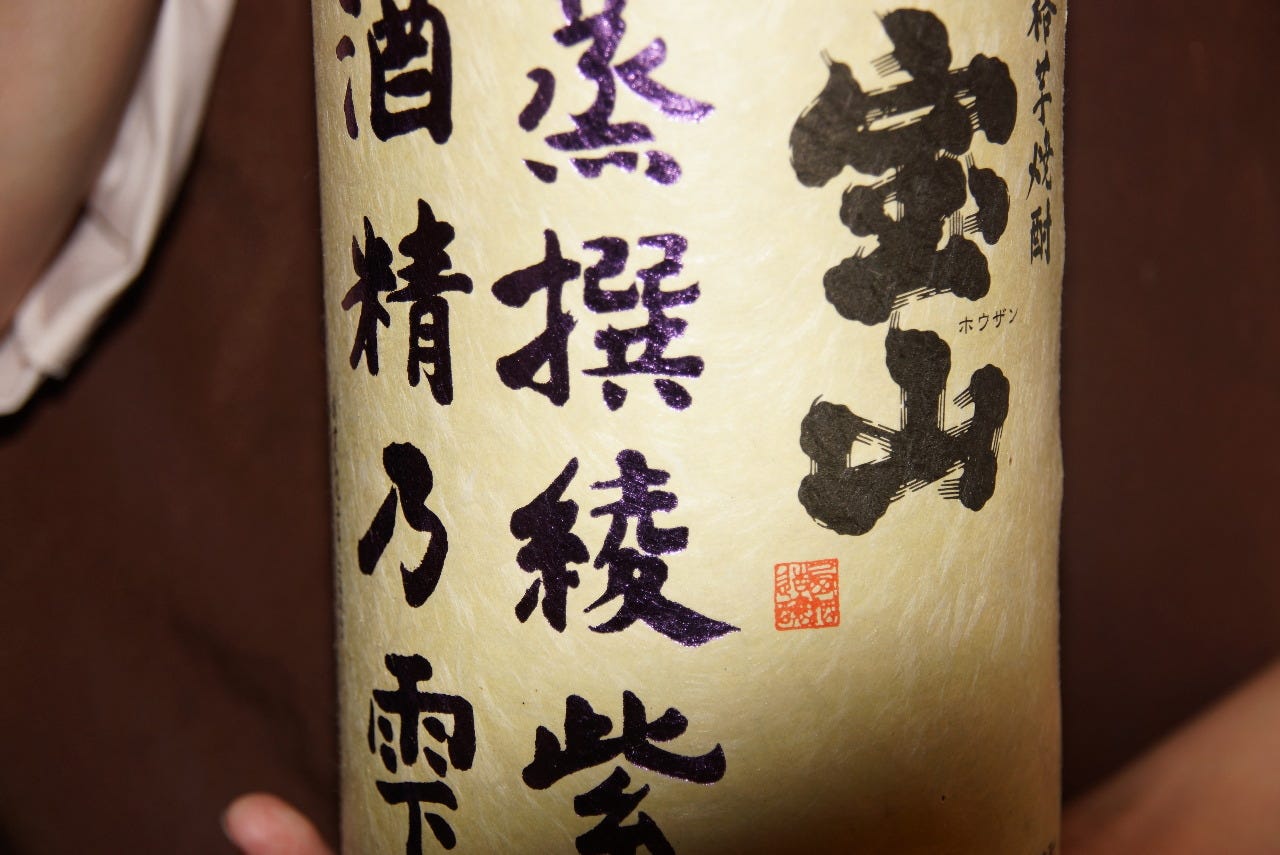 格芋焼酎
宝山
ホウザン
蒸撰綾紫
酒精乃雫